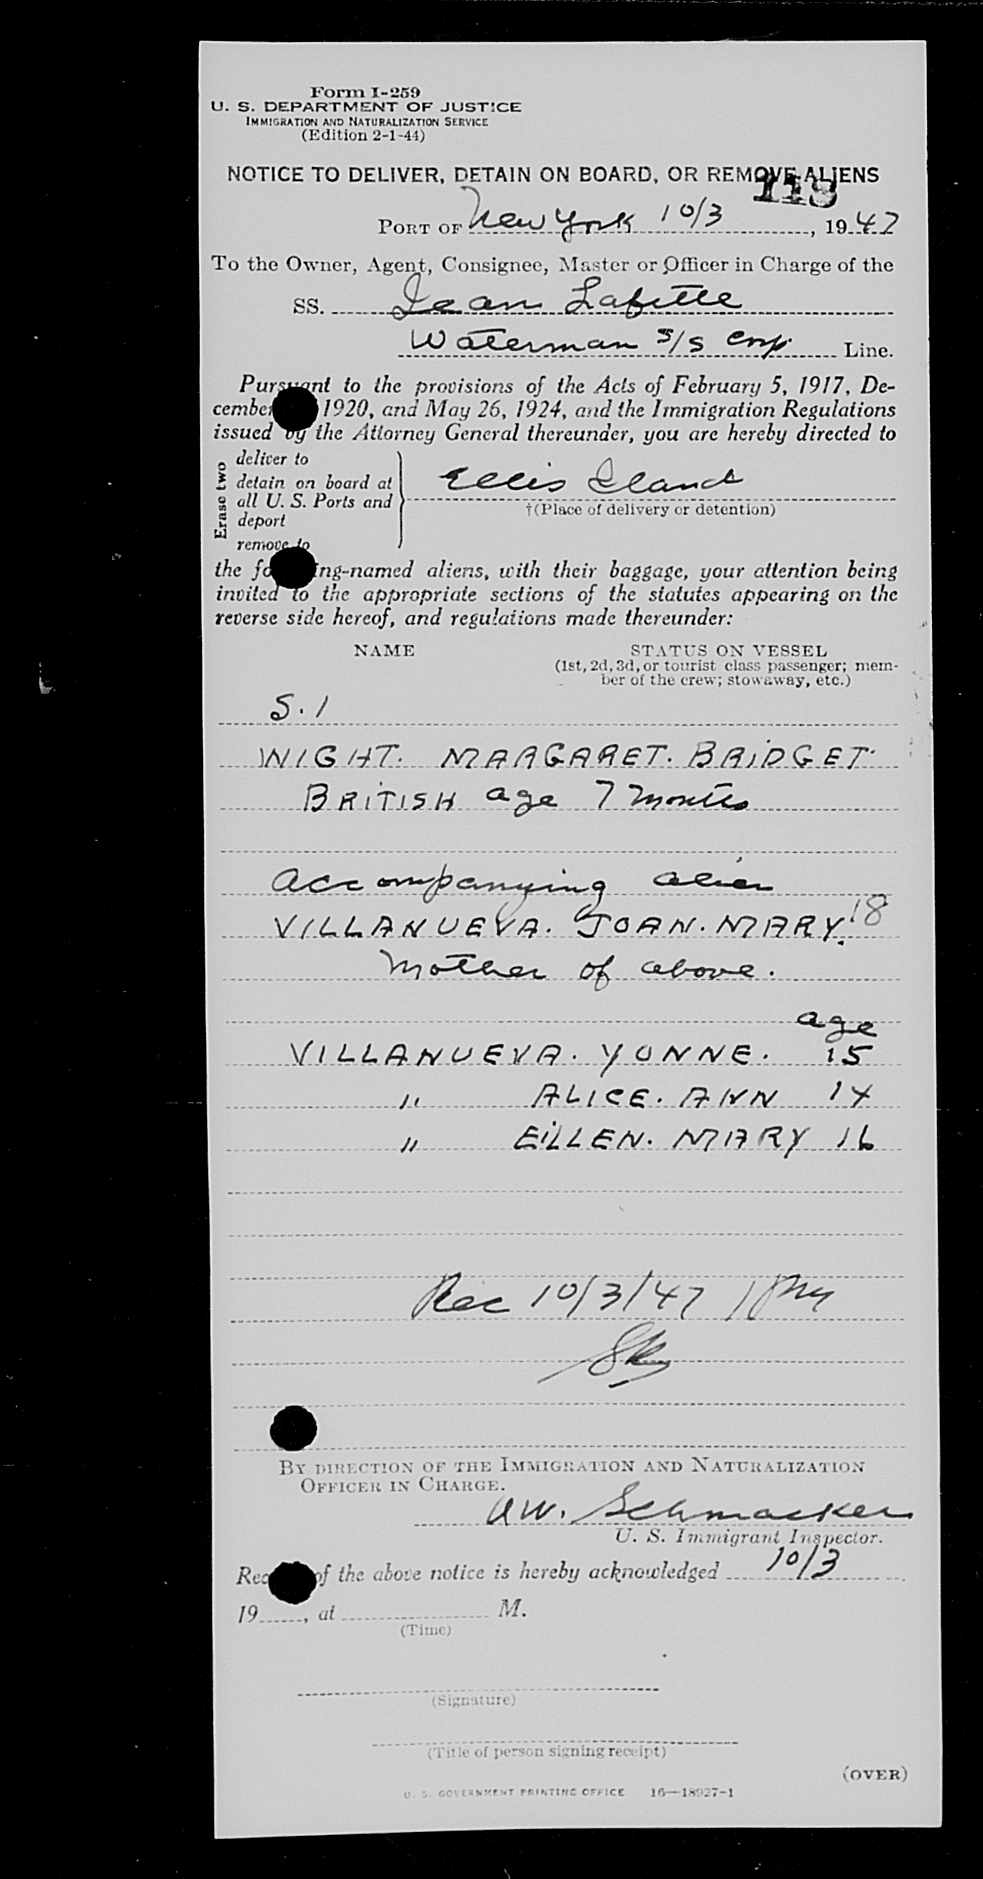 Form I-259
U. S. DEPARTMENT OF JUSTICE
IMMIGRATION AND NATURALIZATION SERVICE
(Edition 2-1-44)
NOTICE TO DELIVER, DETAIN ON BOARD, OR REMOVE ALIENS
118
PORT OF New York 10/3, 1947
To the Owner, Agent, Consignee, Master or Officer in Charge of the
SS. Jean Lafitte
Waterman S/S Corp. Line.
Pursuant to the provisions of the Acts of February 5, 1917, De-
cember 1920, and May 26, 1924, and the Immigration Regulations
issued by the Attorney General thereunder, you are hereby directed to
Erase two
deliver to
detain on board at
all U. S. Ports and
deport
remove to
Ellis Iland
†(Place of delivery or detention)
the following-named aliens, with their baggage, your attention being
invited to the appropriate sections of the statutes appearing on the
reverse side hereof, and regulations made thereunder:
NAME STATUS ON VESSEL
(1st, 2d, 3d, or tourist class passenger; mem-
ber of the crew; stowaway, etc.)
S. 1
WIGHT. MARGARET. BRIDGET.
BRITISH age 7 months
Accompanying alien
VILLANUEVA. JOAN. MARY. 18
Mother of above.
age
VILLANUEVA. YONNE. 15
" ALICE. ANN 14
" EILLEN. MARY 16
Rec 10/3/47 1 PM
BY DIRECTION OF THE IMMIGRATION AND NATURALIZATION
OFFICER IN CHARGE.
A W. Schmacker
U. S. Immigrant Inspector.
Receipt of the above notice is hereby acknowledged 10/3
19, at M.
(Time)
(Signature)
(Title of person signing receipt)
(OVER)
U. S. GOVERNMENT PRINTING OFFICE 16—18927-1